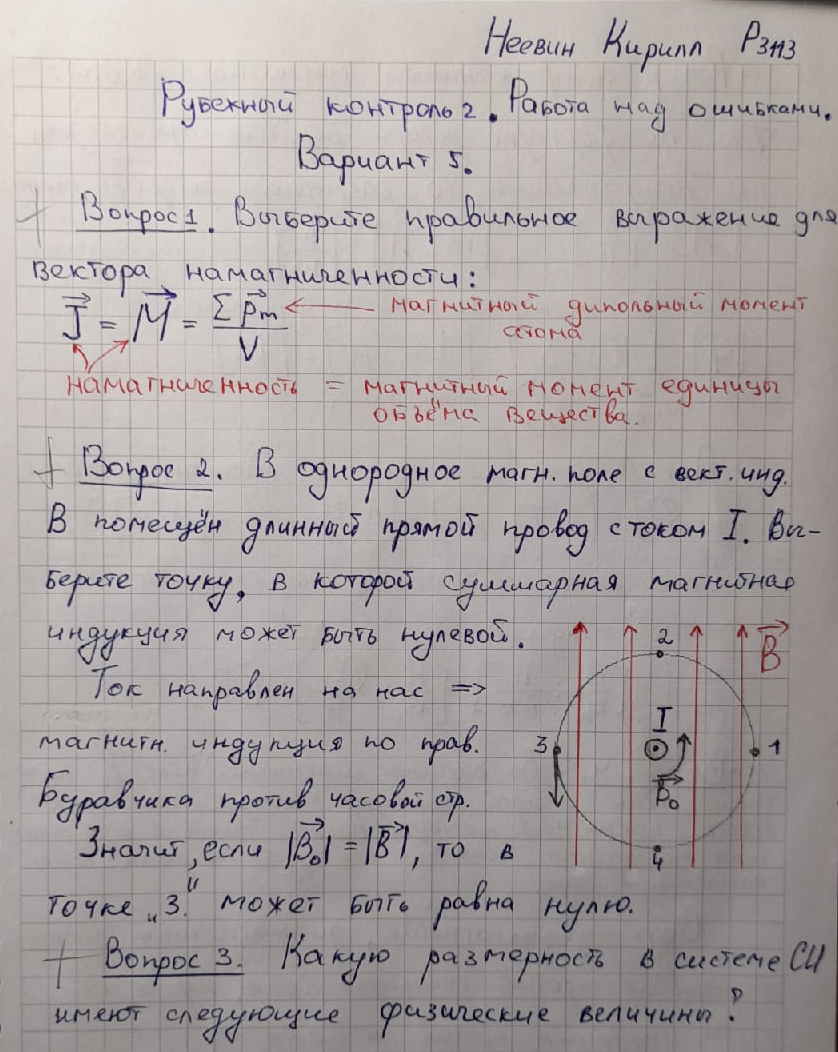 Неевин Кирилл Р3113
Рубежный контроль 2. Работа над ошибками.
Вариант 5.
+ Вопрос 1. Выберите правильное выражение для
вектора намагниченности:
J⃗ = M⃗ = Σp⃗m / V ← магнитный дипольный момент
атома
намагниченность = магнитный момент единицы
объёма вещества.
+ Вопрос 2. В однородное магн. поле с вект. инд.
В помещён длинный прямой провод с током I. Вы-
берите точку, в которой суммарная магнитная
индукция может быть нулевой.
2 B⃗
Ток направлен на нас =>
I
магнитн. индукция по прав.
3 1
Буравчика против часовой стр.
B⃗₀
Значит, если |B⃗₀| = |B⃗|, то в
4
точке „3" может быть равна нулю.
+ Вопрос 3. Какую размерность в системе СИ
имеют следующие физические величины?